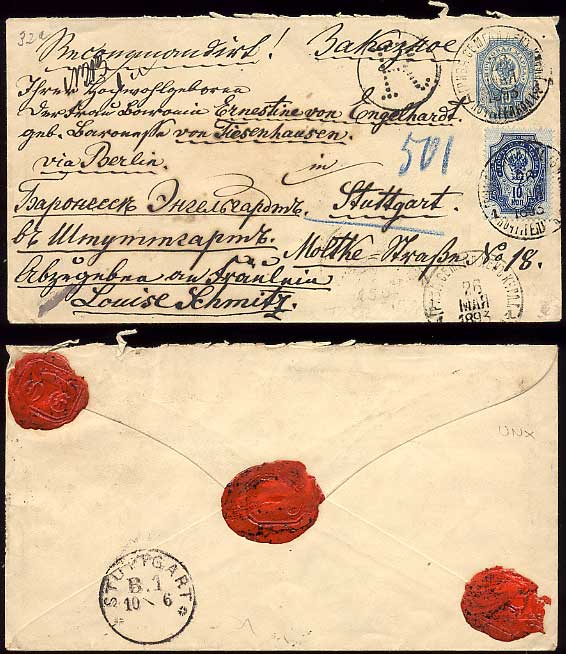 32a
Recommandirt! Заказное
Ihrer Hochwohlgeboren
der Frau Baronin Ernestine von Engelhardt.
geb. Baronesse von Tiesenhausen.
via Berlin. in
501
Баронессѣ Энгельгартъ. Stuttgart.
въ Штутгартъ.
Moltke=Straße No 18.
Abzugeben an Fräulein
Louise Schmitz.
10
КОП
26
МАЙ
1893
UNX
STUTTGART
B.1
10 6